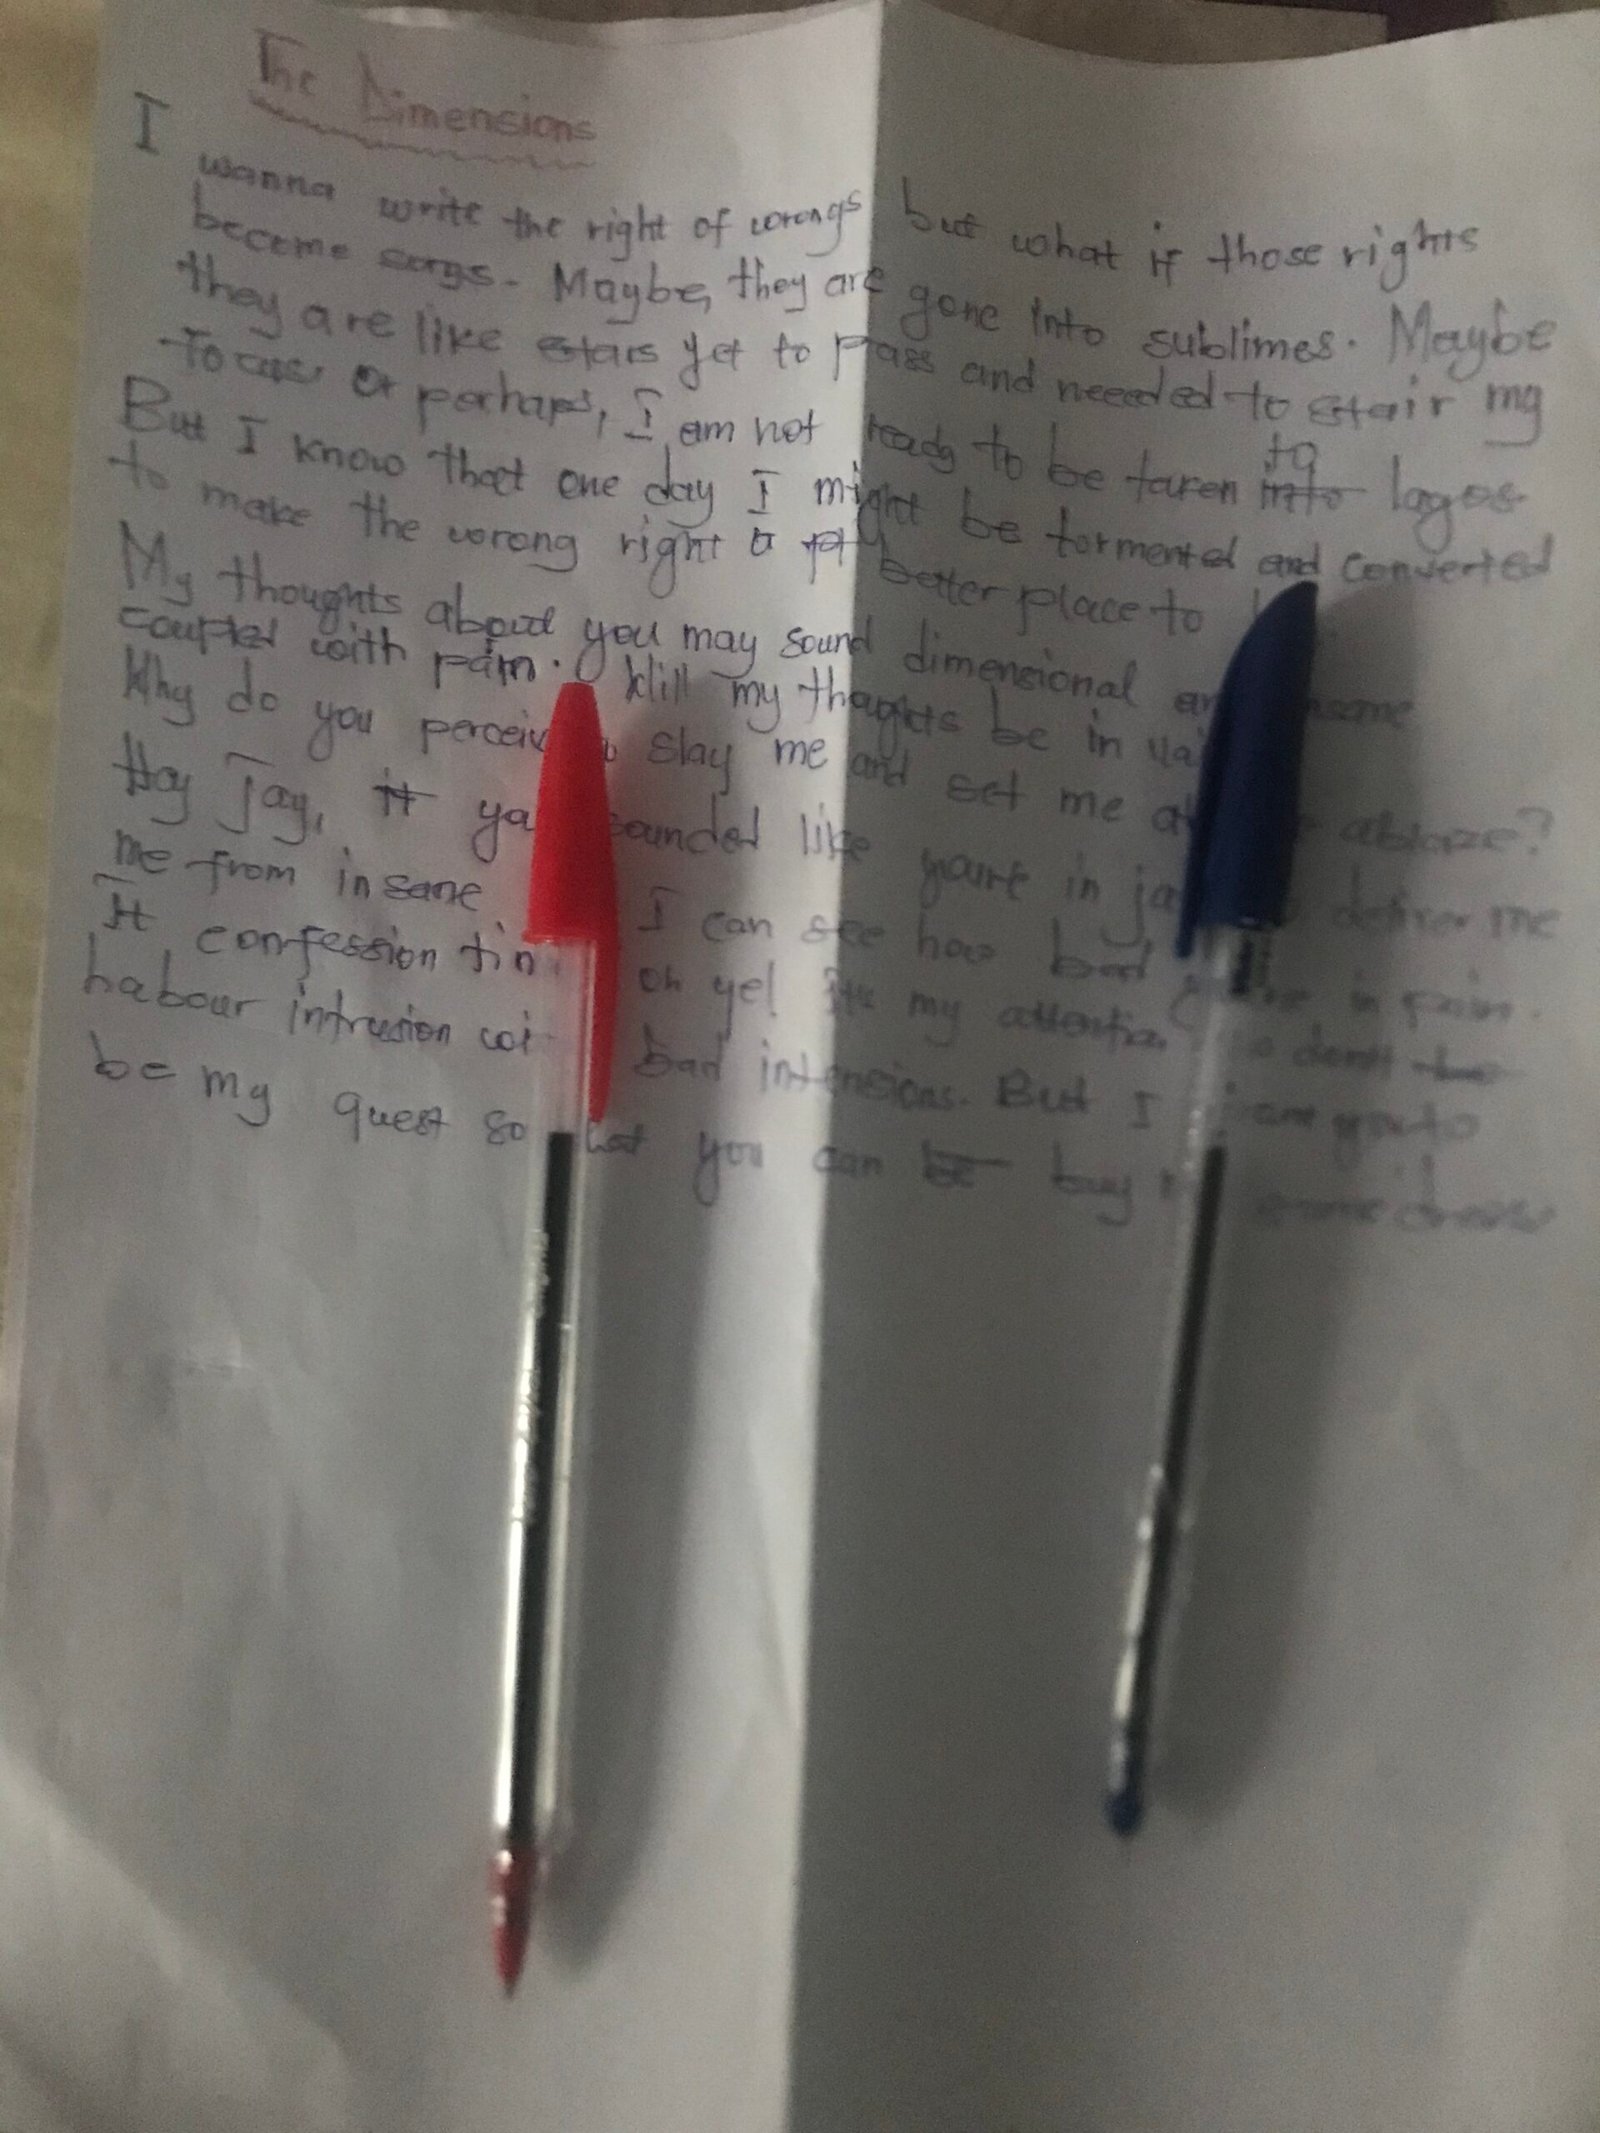 The Dimensions
I wanna write the right of wrongs but what if those rights
become songs. Maybe, they are gone into sublimes. Maybe
they are like stars yet to pass and neeeded to stair my
focus or perhaps, I am not ready to be taken into to lagos
But I know that one day I might be tormented and converted
to make the wrong right a better place to
My thoughts about you may sound dimensional some
coupled with pain. Will my thoughts be in
Why do you slay me and set me ablaze?
Hey Jay, sounded like you're in deliver me
me from insane I can see how bad in pain.
It confession oh ye! my don't
habour intrusion bad intensions. But I to
be my quest so you can be buy